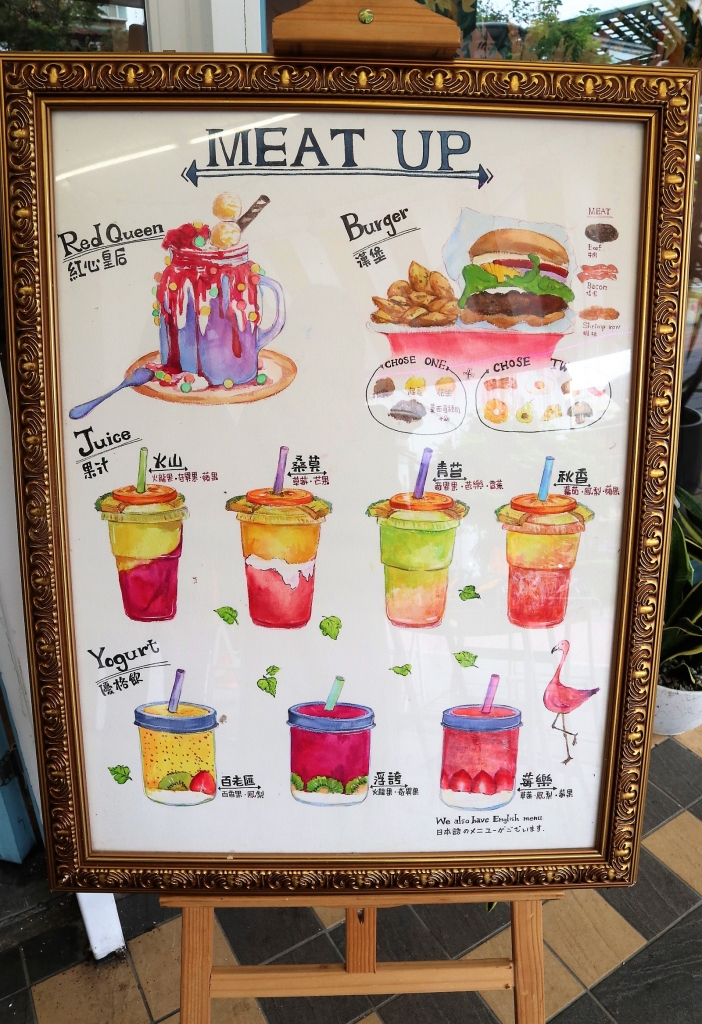 MEAT UP
Red Queen
紅心皇后
Burger
漢堡
MEAT
Beef
牛肉
Bacon
CHOSE ONE
or
CHOSE TW
Juice
果汁
火山
火龍果·百香果·蘋果
桑莫
草莓·芒果
青昔
奇異果·芭樂·香蕉
秋香
蕃茄·鳳梨·蘋果
Yogurt
優格飲
百老匯
百香果·鳳梨
浮誇
火龍果·奇異果
莓樂
草莓·鳳梨·蘋果
We also have English menu
日本語のメニューがございます.